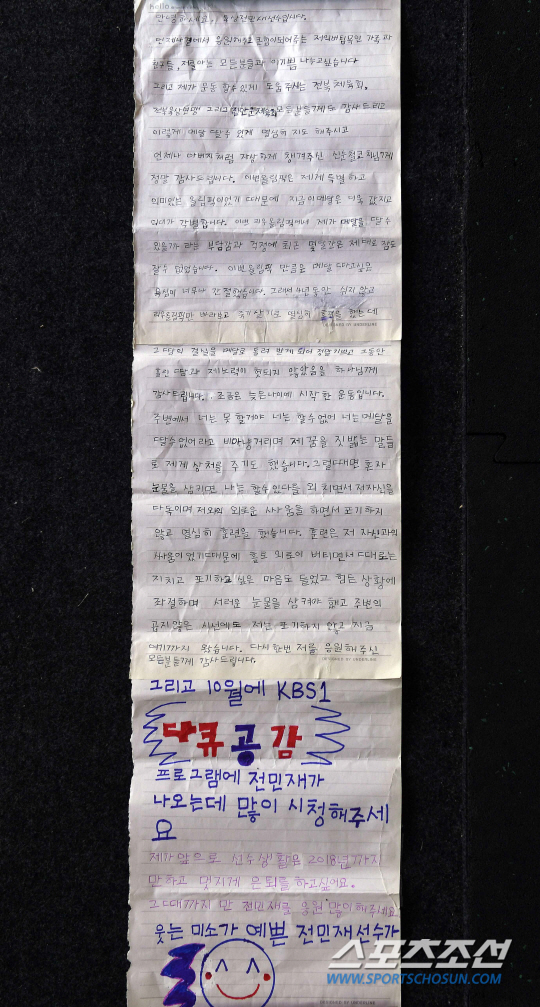 hello
안녕하세요, 육상전민재선수입니다.
언제나 곁에서 응원해주고 조합이되어주는 저의버팀목인 가족과
친구들, 저를아는 모든분들과 이기쁨 나누고싶습니다
그리고 제가 운동 할수있게 도움주시는 전북체육회,
전북육상연맹 그리고 모든분들께도 감사드리고
이렇게 메달 딸수 있게 열심히 지도 해주시고
언제나 아버지 처럼 자상하게 챙겨주신 신순철코치님께
정말 감사드립니다. 이번올림픽은 제게 특별 하고
의미있는 올림픽이었기 때문에 지금이메달은 더욱 값지고
의미가 각별합니다. 이번 리우올림픽에서 제가 메달을 딸수
있을까 라는 부담감과 걱정에 최근 몇달간은 제대로 잠도
잘수 없었습니다. 이번올림픽 만큼을 메달 따고싶은
욕심이 너무나 간절했습니다. 그래서 4년동안 쉬지 않고
리우올림픽만 바라보고 죽기살기로 열심히 훈련을 했는데
그땀의 결실을 메달로 돌려 받게 되어 정말기쁘고 그동안
흘린 땀과 제노력이 헛되지 않았음을 하나님께
감사드립니다. 조금은 늦은나이에 시작한 운동입니다.
주변에서 너는 못 할거야 너는 할수없어 너는메달을
딸수없어라고 비아냥거리며 제 꿈을 짓밟는 말들
로 제게 상처를 주기도 했습니다. 그럴때면 혼자
눈물을 삼키면 나는 할수있다를 외 치면서 저자신을
다독이며 저와의 외로운 싸움을 하면서 포기하지
않고 열심히 훈련을 했습니다. 훈련은 저 자신과의
싸움이었기때문에 홀로 외로이 버티면서 때로는
지치고 포기하고 싶은 마음도 들었고 힘든 상황에
좌절하며 서러운 눈물을 삼켜야 했고 주변의
곱지않은 시선에도 저는 포기하지 않고 지금
여기까지 왔습니다. 다시한번 저를 응원해주신
모든분들께 감사드립니다.
그리고 10월에 KBS1
다큐공감
프로그램에 전민재가
나오는데 많이 시청해주세
요
제가앞으로 선수생활은 2018년까지
만하고 멋지게 은퇴를 하고싶어요.
그때까지 만 전민재로 응원 많이해주세요
웃는 미소가 예쁜 전민재선수가
스포츠조선
WWW.SPORTSCHOSUN.COM